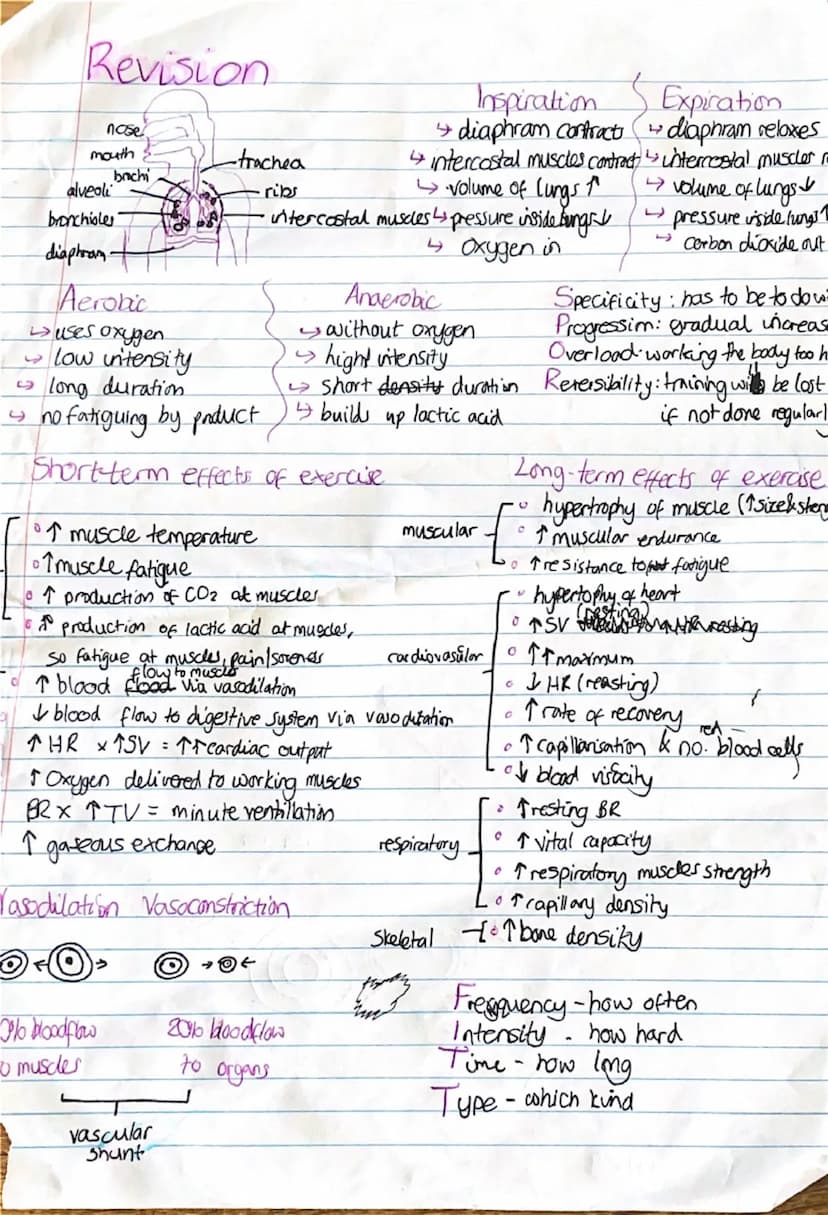 Revision
nose
mouth
bachi
alveoli
bronchioles
diaphram
trachea
ribs
intercostal muscles
Inspiration
↳ diaphram contract
↳ intercostal muscles contract
↳ volume of lungs ↑
↳ pressure inside lungs ↓
↳ oxygen in
Expiration
↳ diaphram relaxes
↳ intercostal muscles
↳ volume of lungs ↓
↳ pressure inside lungs ↑
↳ carbon dioxide out
Aerobic
↳ uses oxygen
↳ low intensity
↳ long duration
↳ no fatiguing by product
Anaerobic
↳ without oxygen
↳ high intensity
↳ short density duration
↳ builds up lactic acid
Specificity: has to be to do
Progression: gradual increas
Overload: working the body too h
Reversibility: training will be lost
if not done regularl
Short-term effects of exercise
↑ muscle temperature
↑ muscle fatigue
↑ production of CO2 at muscles
↑ production of lactic acid at muscles,
so fatigue at muscles, pain/soreness
flow to muscles
↑ blood flood via vasodilation
↓ blood flow to digestive system via
↑ HR x ↑ SV = ↑↑ cardiac output
↑ Oxygen delivered to working muscles
BR x ↑ TV = minute ventillation
↑ gaseous exchange
Long-term effects of exercise
muscular
hypertrophy of muscle (↑ size & stren
↑ muscular endurance
↑ resistance to fatigue
cardiovasular
hypertophy of heart
(resting)
↑ SV
↑↑ maximum
↓ HR (reasting)
↑ rate of recovery
red
↑ capillarisation & no. blood cells
↓ blood viscity
respiratory
↑ resting BR
↑ vital capacity
↑ respiratory muscles strength
↑ capillary density
Skeletal
↑ bone density
Vasodilation Vasoconstriction
0% bloodflow
o muscles
20% bloodflow
to organs
vascular
shunt
Frequency - how often
Intensity - how hard
Time - how long
Type - which kind